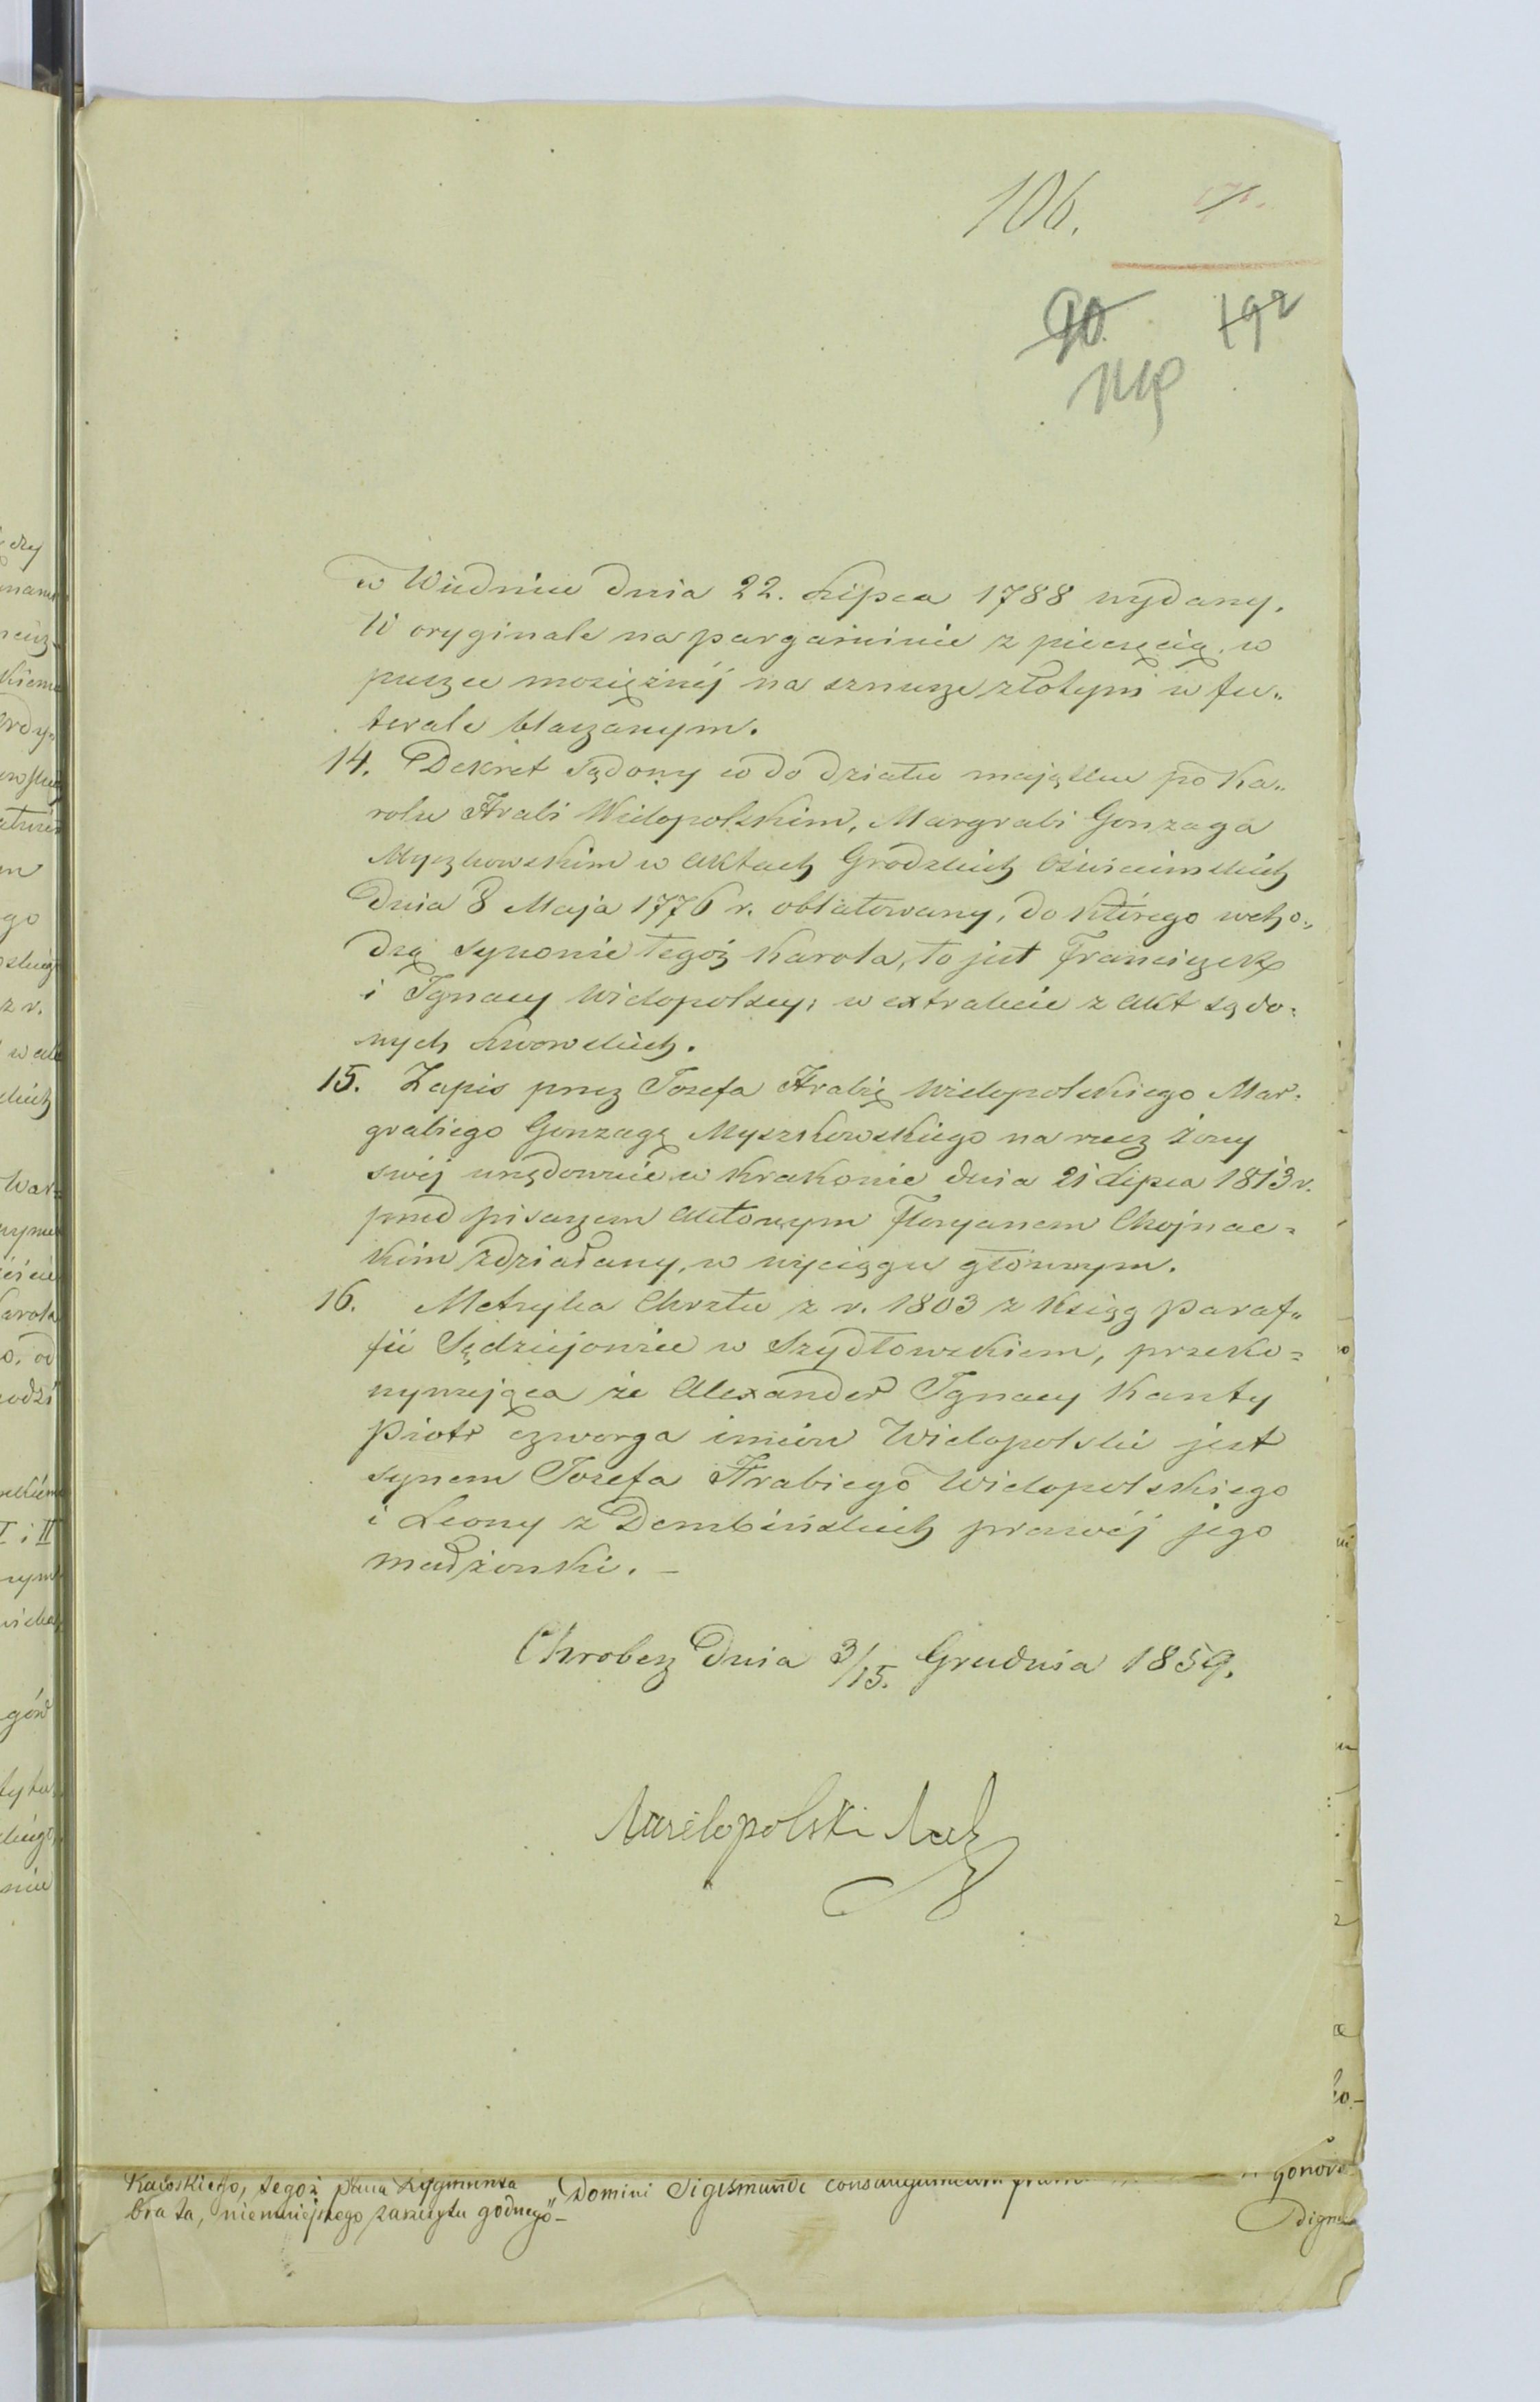 106.
90.
192
119
w Wiedniu dnia 22. Lipca 1788 wydany.
W oryginale na pargaminie z pieczęcią w
puszce mosiężnéj na sznurze złotym w fu„
terale blaszanym.
14. Dekret sądowy co do działu majątku po Ka„
rolu Hrabi Wielopolskim, Margrabi Gonzaga
Myszkowskim w Aktach Grodzkich Oświecimskich
Dnia 8 Maja 1776 r. oblatowany, do którego wcho„
dzą synowie tegoż Karola, to jest Franciszek
i Ignacy Wielopolscy, w extrakcie z Akt sądo=
wych Lwowskich.
15. Zapis przez Józefa Hrabię Wielopolskiego Mar=
grabiego Gonzagę Myszkowskiego na rzecz żony
swéj urzędownie w Krakowie dnia 21 Lipca 1813 r.
przed pisarzem Aktowym Floryanem Chojnac=
kim zdziałany, w wyciągu głównym.
16. Metryka Chrztu z r. 1803 z Ksiąg Paraf„
fii Sędziejowice w Szydłowskiem, przeko=
nywająca że Alexander Ignacy Kanty
Piotr czworga imion Wielopolski jest
synem Józefa Hrabiego Wielopolskiego
i Leony z Dembińskich prawéj jego
małżonki. –
Chroberz Dnia 3/15. Grudnia 1859.
Wielopolski
Kaińskiego, tegoż Pana Zygmunta
brata, niemniejszego zaszczytu godnego" –
Domini Sigismundi consanguineum